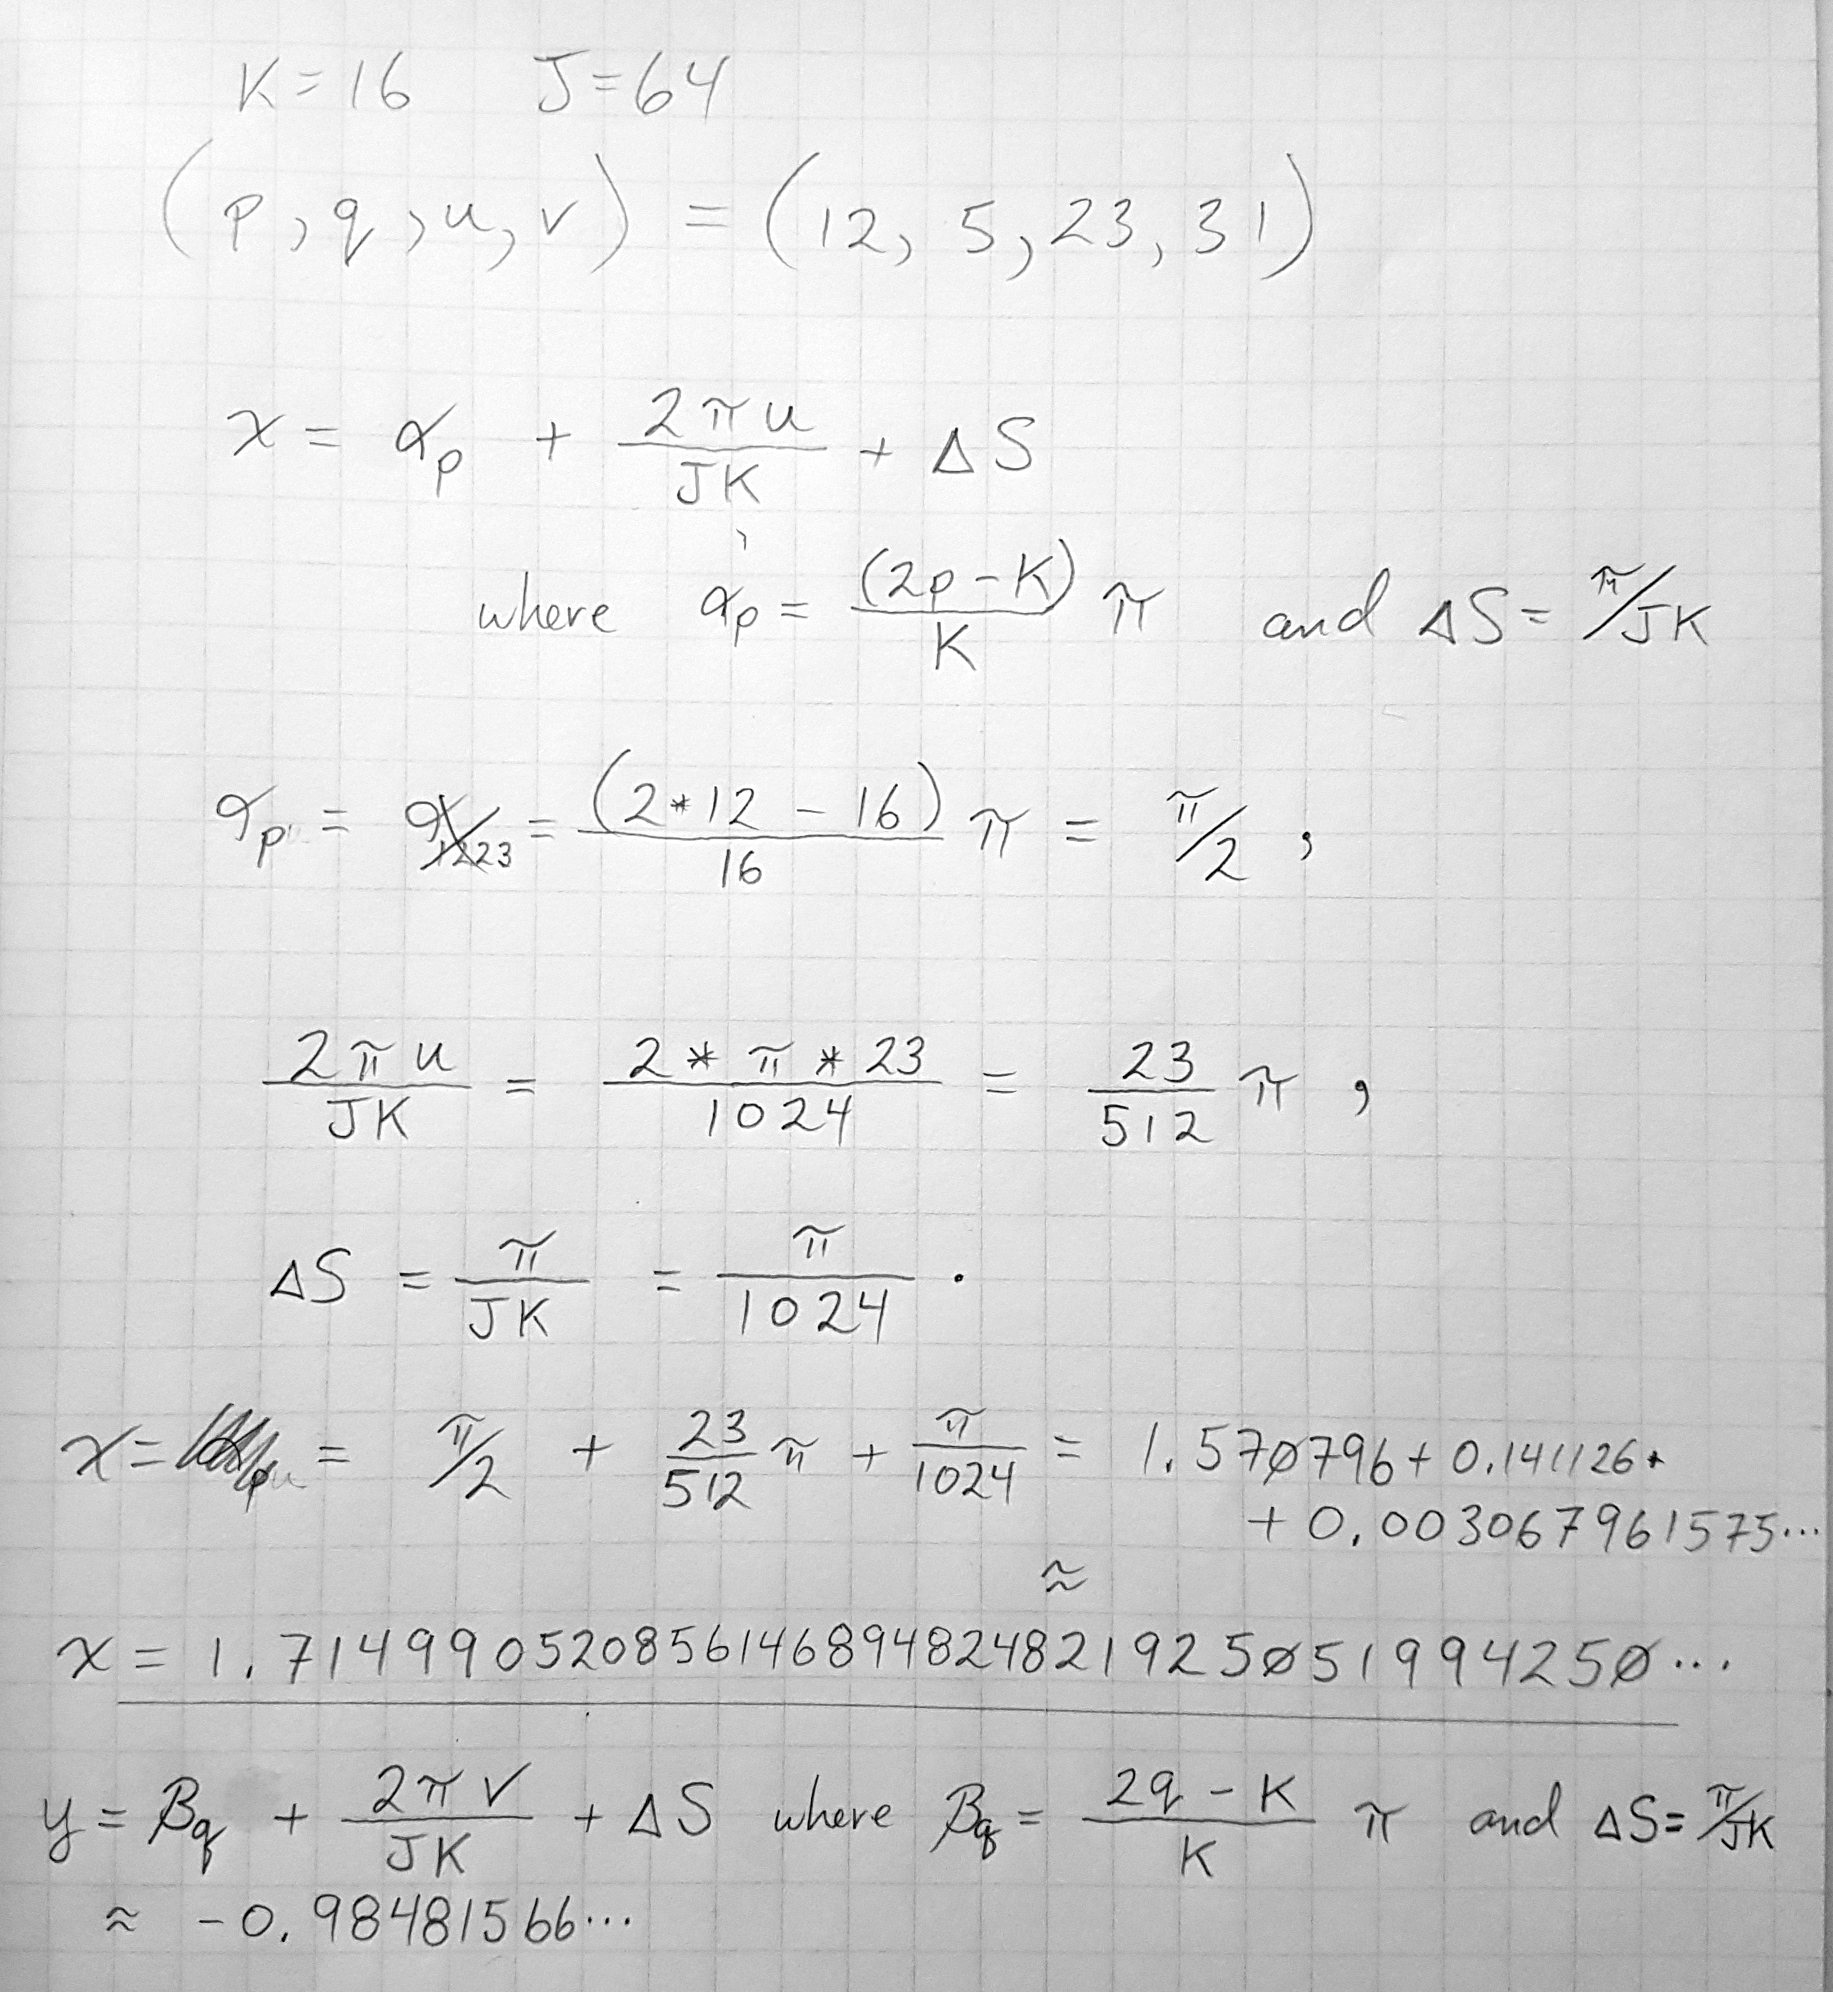 K=16 J=64
(p, q, u, v) = (12, 5, 23, 31)
x = α_p + 2πu/JK + ΔS
where α_p = (2p-K)/K π and ΔS = π/JK
α_p = (2*12 - 16)/16 π = π/2 ,
2πu/JK = 2*π*23/1024 = 23/512 π ,
ΔS = π/JK = π/1024 .
x = = π/2 + 23/512 π + π/1024 = 1.570796 + 0.141126 +
+ 0.003067961575...
≈
x = 1.7149905208561468948248219250519942 50...
y = β_q + 2πv/JK + ΔS where β_q = 2q - K/K π and ΔS = π/JK
≈ -0.98481566...